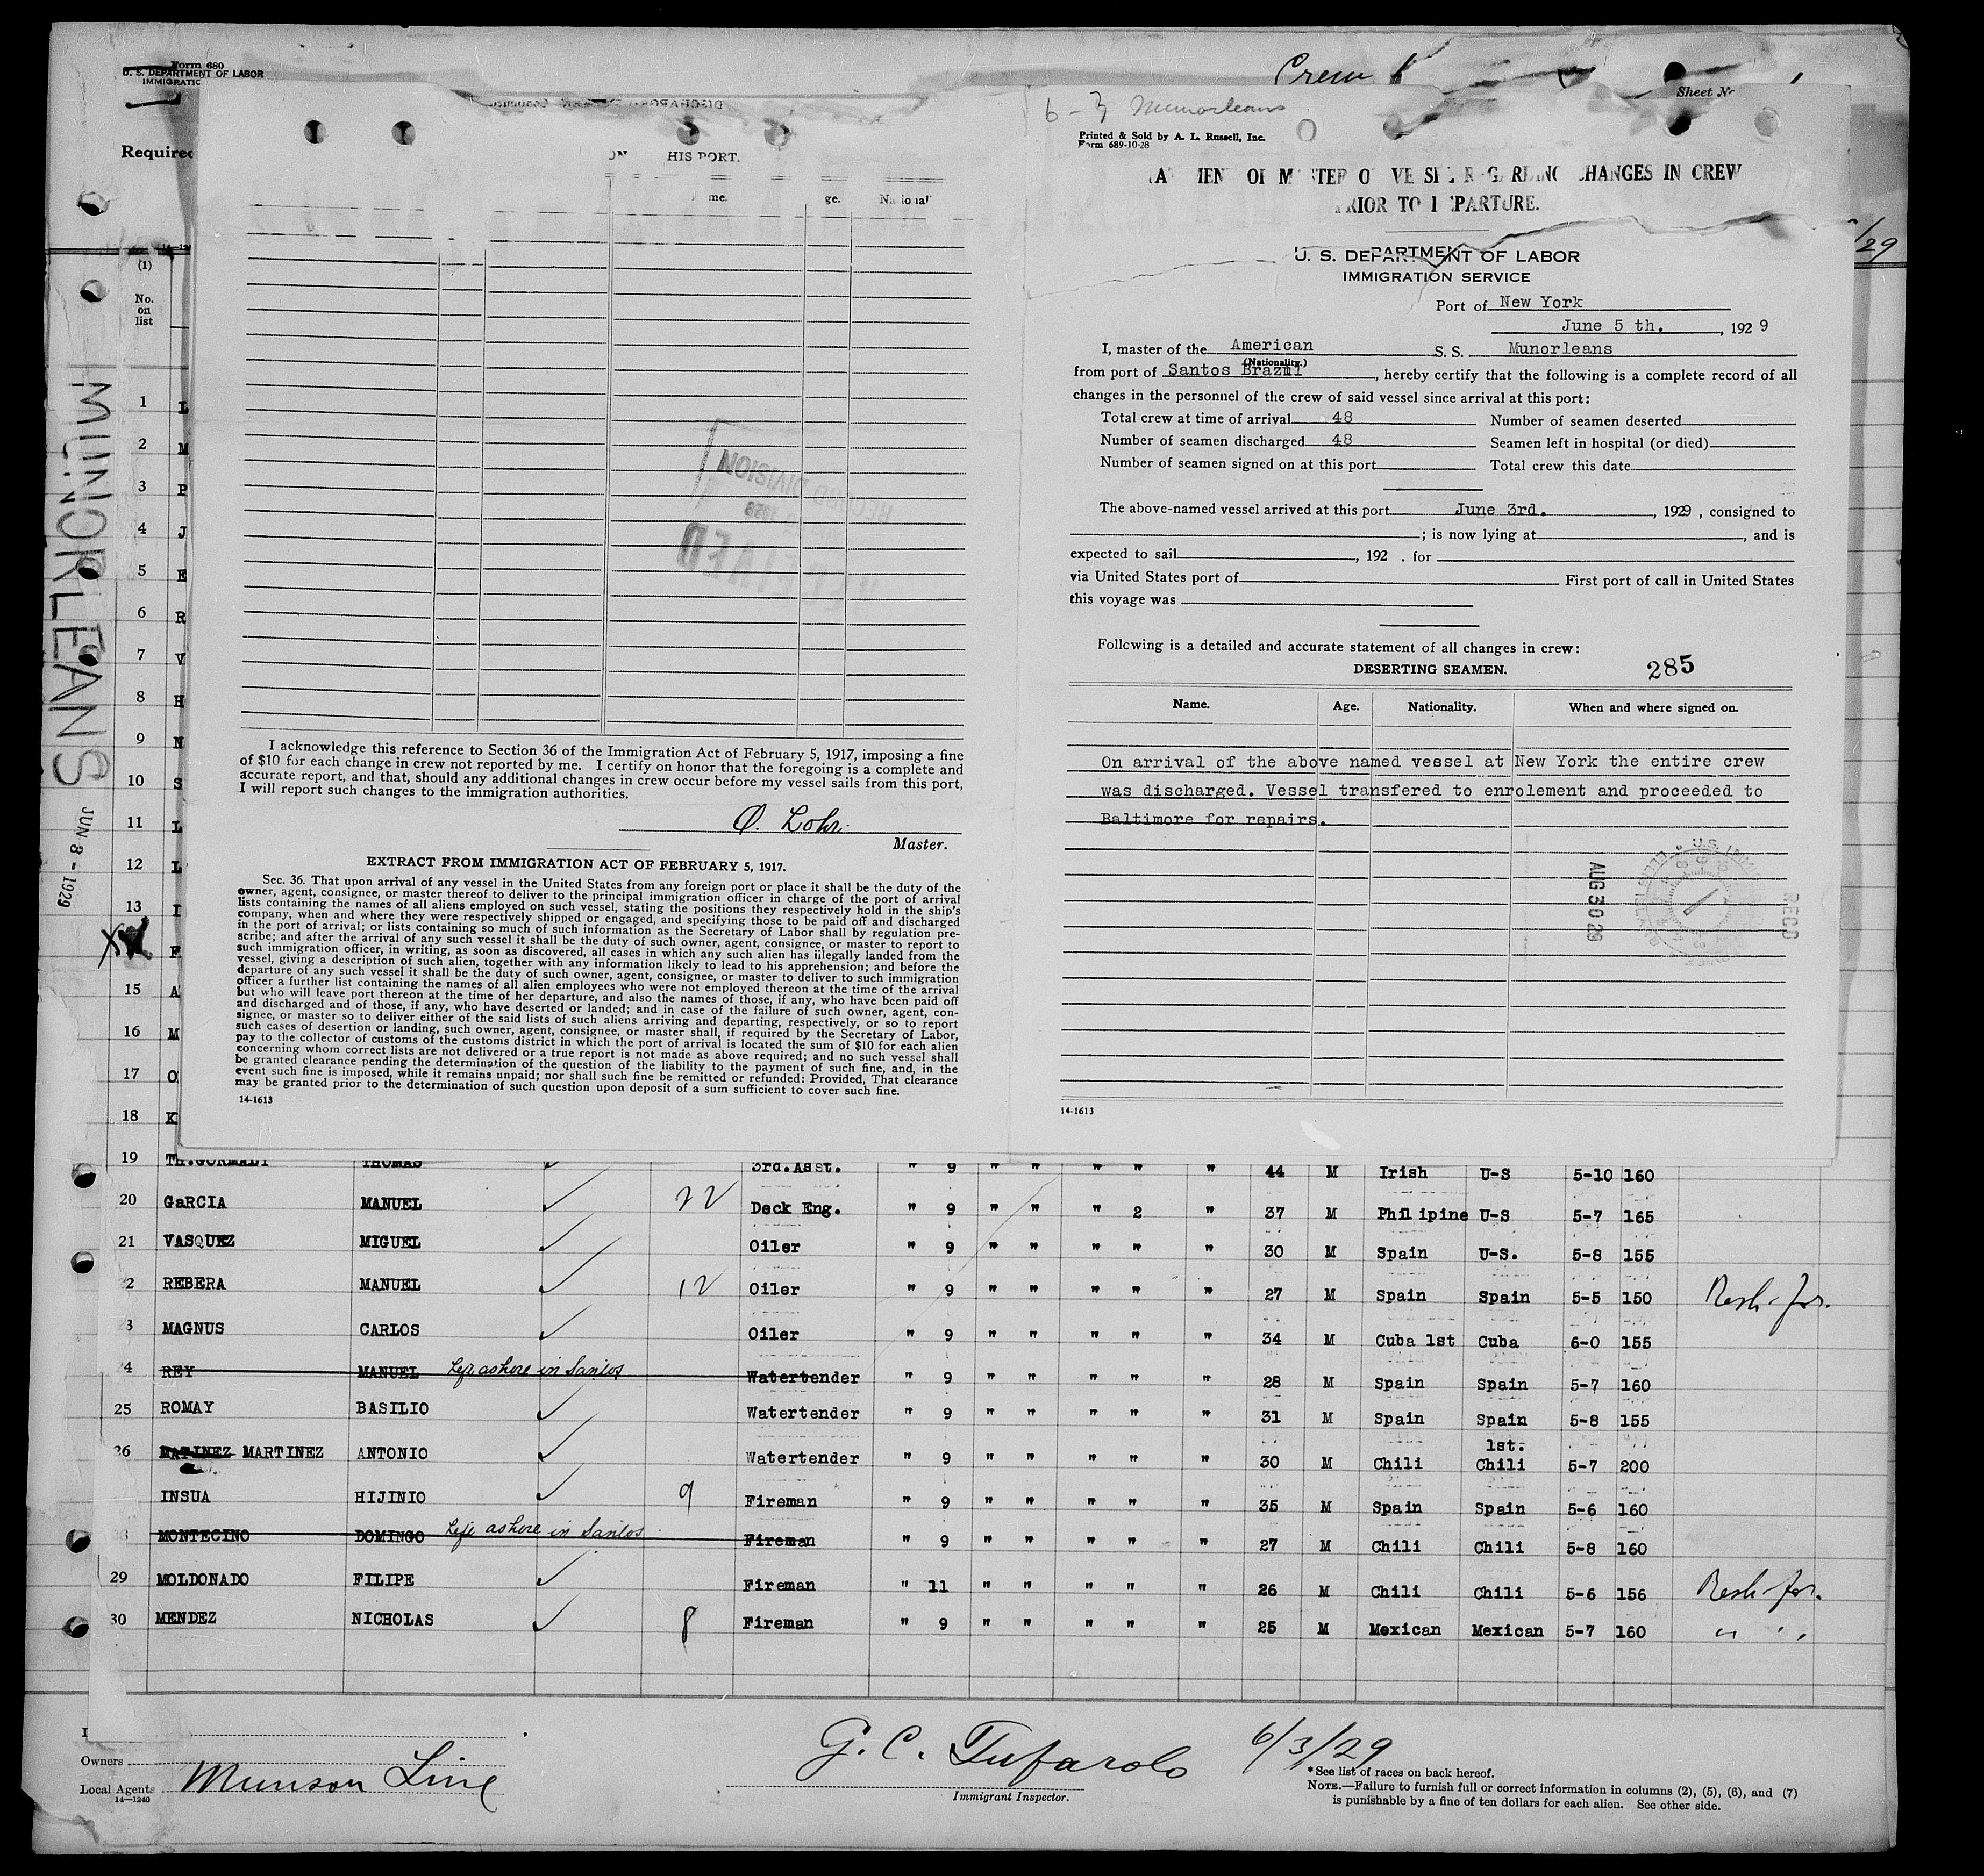 Form 680
U. S. DEPARTMENT OF LABOR
IMMIGRATIC
Required
Crew
Sheet
/29
(1)
No.
on
list
MUNORLEANS
JUN 8 - 1929
HIS PORT.
me.
ge.
I acknowledge this reference to Section 36 of the Immigration Act of February 5, 1917, imposing a fine
of $10 for each change in crew not reported by me. I certify on honor that the foregoing is a complete and
accurate report, and that, should any additional changes in crew occur before my vessel sails from this port,
I will report such changes to the immigration authorities.
O. Lohr.
Master.
EXTRACT FROM IMMIGRATION ACT OF FEBRUARY 5, 1917.
Sec. 36. That upon arrival of any vessel in the United States from any foreign port or place it shall be the duty of the
owner, agent, consignee, or master thereof to deliver to the principal immigration officer in charge of the port of arrival
lists containing the names of all aliens employed on such vessel, stating the positions they respectively hold in the ship's
company, when and where they were respectively shipped or engaged, and specifying those to be paid off and discharged
in the port of arrival; or lists containing so much of such information as the Secretary of Labor shall by regulation pre-
scribe; and after the arrival of any such vessel it shall be the duty of such owner, agent, consignee, or master to report to
such immigration officer, in writing, as soon as discovered, all cases in which any such alien has illegally landed from the
vessel, giving a description of such alien, together with any information likely to lead to his apprehension; and before the
departure of any such vessel it shall be the duty of such owner, agent, consignee, or master to deliver to such immigration
officer a further list containing the names of all alien employees who were not employed thereon at the time of the arrival
but who will leave port thereon at the time of her departure, and also the names of those, if any, who have been paid off
and discharged and of those, if any, who have deserted or landed; and in case of the failure of such owner, agent, con-
signee, or master so to deliver either of the said lists of such aliens arriving and departing, respectively, or so to report
such cases of desertion or landing, such owner, agent, consignee, or master shall, if required by the Secretary of Labor,
pay to the collector of customs of the customs district in which the port of arrival is located the sum of $10 for each alien
concerning whom correct lists are not delivered or a true report is not made as above required; and no such vessel shall
be granted clearance pending the determination of the question of the liability to the payment of such fine, and, in the
event such fine is imposed, while it remains unpaid; nor shall such fine be remitted or refunded: Provided, That clearance
may be granted prior to the determination of such question upon deposit of a sum sufficient to cover such fine.
14-1613
RECEIVED
RECORD DIVISION
6-3 Munorleans
Printed & Sold by A. L. Russell, Inc.
Form 689-10-28
CHANGES IN CREW
PRIOR TO DEPARTURE.
U. S. DEPARTMENT OF LABOR
IMMIGRATION SERVICE
Port of New York
June 5 th. , 192 9
I, master of the American S. S. Munorleans
(Nationality.)
from port of Santos Brazil , hereby certify that the following is a complete record of all
changes in the personnel of the crew of said vessel since arrival at this port:
Total crew at time of arrival 48 Number of seamen deserted
Number of seamen discharged 48 Seamen left in hospital (or died)
Number of seamen signed on at this port Total crew this date
The above-named vessel arrived at this port June 3rd. , 1929 , consigned to
; is now lying at , and is
expected to sail , 192 . for
via United States port of First port of call in United States
this voyage was
Following is a detailed and accurate statement of all changes in crew:
DESERTING SEAMEN. 285
Name. Age. Nationality. When and where signed on.
On arrival of the above named vessel at New York the entire crew
was discharged. Vessel transfered to enrolement and proceeded to
Baltimore for repairs.
AUG 30 29
RECD
14-1613
1 L
2 M
3 P
4 J
5 E
6 R
7 V
8 H
9 N
10 S
11 L
12 L
13 I
F
15 A
16 M
17 O
18 K
19 THOMAS 3rd.Asst. " 9 " " " " " 44 M Irish U-S 5-10 160
20 GaRCIA MANUEL 22 Deck Eng. " 9 " " " 2 " 37 M Philipine U-S 5-7 165
21 VASQUEZ MIGUEL Oiler " 9 " " " " " 30 M Spain U-S. 5-8 155
2 REBERA MANUEL 12 Oiler " 9 " " " " " 27 M Spain Spain 5-5 150
3 MAGNUS CARLOS Oiler " 9 " " " " " 34 M Cuba 1st Cuba 6-0 155
4 REY MANUEL Left ashore in Santos Watertender " 9 " " " " " 28 M Spain Spain 5-7 160
25 ROMAY BASILIO Watertender " 9 " " " " " 31 M Spain Spain 5-8 155
26 MATINEZ MARTINEZ ANTONIO Watertender " 9 " " " " " 30 M Chili 1st. Chili 5-7 200
INSUA HIJINIO 9 Fireman " 9 " " " " " 35 M Spain Spain 5-6 160
MONTECINO DOMINGO Left ashore in Santos Fireman " 9 " " " " " 27 M Chili Chili 5-8 160
29 MOLDONADO FILIPE Fireman " 11 " " " " " 26 M Chili Chili 5-6 156
30 MENDEZ NICHOLAS 8 Fireman " 9 " " " " " 25 M Mexican Mexican 5-7 160 " "
Owners
Local Agents Munson Line
14-1240
G. C. Tufarolo 6/3/29
Immigrant Inspector.
* See list of races on back hereof.
NOTE.—Failure to furnish full or correct information in columns (2), (5), (6), and (7)
is punishable by a fine of ten dollars for each alien. See other side.